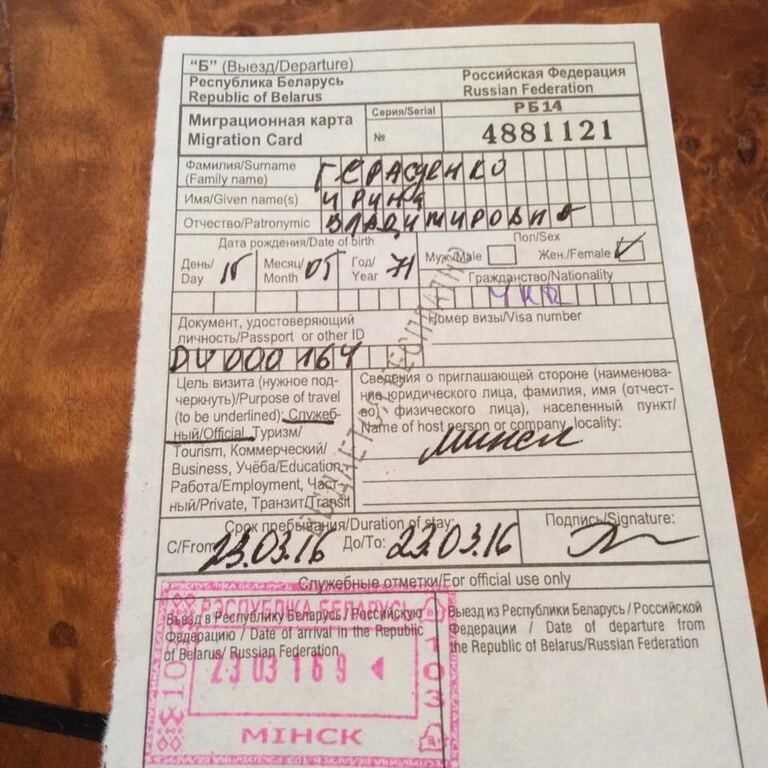 "Б" (Выезд/Departure)
Республика Беларусь
Republic of Belarus
Российская Федерация
Russian Federation
Миграционная карта
Migration Card
Серия/Serial
№
РБ14
4881121
Фамилия/Surname
(Family name)
ГЕРАЩЕНКО
Имя/Given name(s)
ИРИНА
Отчество/Patronymic
ВЛАДИМИРОВНА
Дата рождения/Date of birth
День/
Day
15
Месяц/
Month
05
Год/
Year
71
Пол/Sex
Муж/Male
Жен./Female
Гражданство/Nationality
УКР
Документ, удостоверяющий
личность/Passport or other ID
DU000164
Номер визы/Visa number
Цель визита (нужное под-
черкнуть)/Purpose of travel
(to be underlined): Служеб-
ный/Official, Туризм/
Tourism, Коммерческий/
Business, Учёба/Education,
Работа/Employment, Част-
ный/Private, Транзит/Transit
Сведения о приглашающей стороне (наименова-
ние юридического лица, фамилия, имя (отчест-
во) физического лица), населенный пункт/
Name of host person or company, locality:
Минск
Срок пребывания/Duration of stay:
С/From: 23.03.16 До/To: 23.03.16
Подпись/Signature:
Служебные отметки/For official use only
Въезд в Республику Беларусь / Российскую
Федерацию / Date of arrival in the Republic
of Belarus/ Russian Federation
Выезд из Республики Беларусь / Российской
Федерации / Date of departure from
the Republic of Belarus/Russian Federation
РЭСПУБЛІКА БЕЛАРУСЬ
23 03 16 9
103
МІНСК